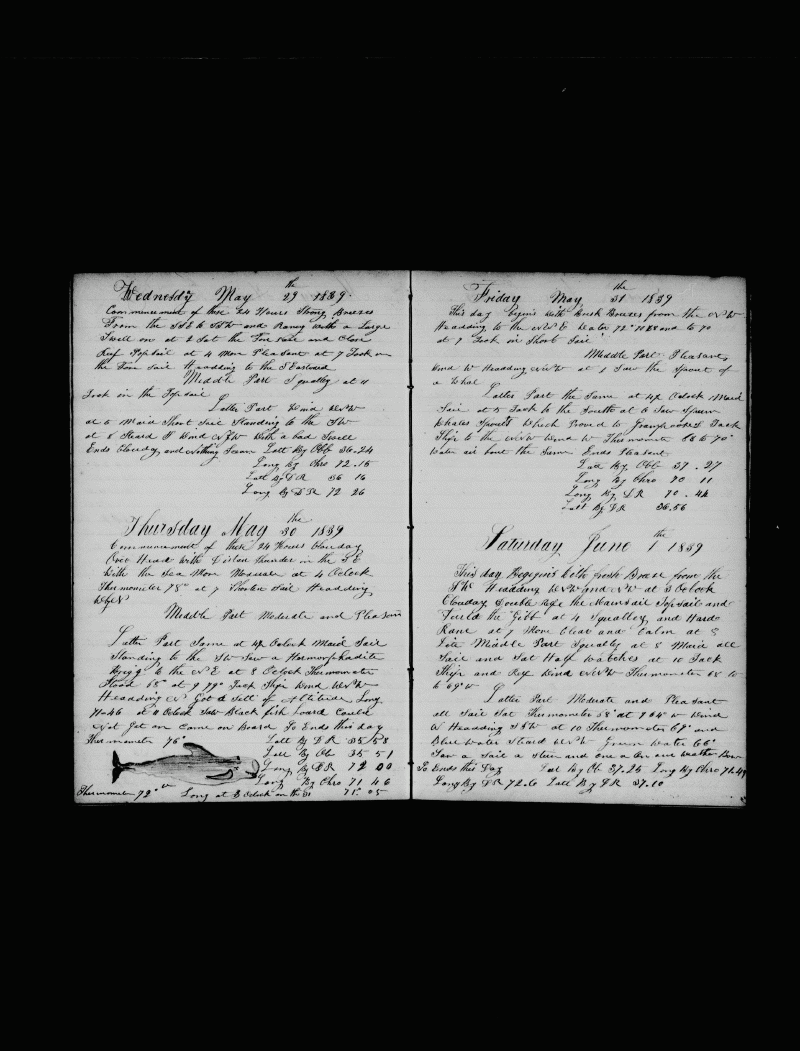 Wednesday May 29th 1839.
Commencement of these 24 Hours Strong Breezes
From the to SW and Raney With a Large
Swell on at 2 Sat the Foresail and Close
Reef Topsail at 4 More Pleasant at 7 Took in
the Fore Sail Headding to the S Eastward
Middle Part Squalley at 11
Took in the Topsail
Latter Part Wind WNW
at 5 Maid Short Sail Standing to the SW
at 8 Wind With a bad Swell
Ends Cloudy and Nothing Seen Latt By Obb 36.24
Long By Chro 72.15
Latt By D R 36 16
Long By D R 72 26
Thursday May 30 the 1839
Commencement of these 24 Hours Clouday
Over Head With Disten thunder in the S E
With the Sea More Moderate at 4 Oclock
Thermometer 78° at 7 Shorten Sail Headding
Middle Part Moderate and Pleasant
Latter Part Same at 4 Oclock Maid Sail
Standing to the SW Saw a Hermorphadite
Brigg to the N E at 8 Oclock Thermometer
Stood 68° at 9 77° Tack Ship Wind WNW
Headding N Got a Sett of Altitude Long
71=46 at 11 Oclock Saw Black fish Loard Could
Not Get on Came on Board So Ends this day
Thermometer 76° Latt By D R 35/58
Latt By Ob 35 51
Long By D R 72 00
Long By Chro 71 46
Thermometer 72° Long at 2 Oclock on the 31 71°.05
Friday May 31 the 1839
This day Begins With Brisk Breezes from the NW
Headding to the NNE Water 72° to 70
at 7 Took in Short Sail
Middle Part Pleasant,
Wind W Headding NNW at 1 Saw the Spout of
a Whal
Latter Part the Same at 4 Oclock Maid
Sail at 5 Tack to the South at 6 Saw Spurm
Whales Spouts Which Proved to Tack
Ship to the NNW Wind W Thermometer 68 to 70°
Water air bout the Same Ends Pleasant
Latt By Obb 37.27
Long By Chro 70 11
Long By D R 70.42
Latt By D R 36.56
Saturday June 1 the 1839
This day Beggins With fresh Breeze from the
Headding WNW and NW at 3 Oclock
Clouday Double Reef the Mainsail Topsail and
Furld the Gibb at 4 Squalley and Hard
Rane at 7 More Clear and Calm at 8
Middle Part Squalley at 8 Maid all
Sail and Sat Half Watches at 10 Tack
Ship and Reef Wind NNW Thermometer 68
to 69°
Latter Part Moderate and Pleasant
all Sail Sat Thermometer 68° at 9 Wind
W Headding SSW at 10 Thermometer 69° and
Blue Water Steard WNW Green Water 66°
Saw a Sail a Stern and one a on our Weather Bow
So Ends this Day Latt By Ob 37.25 Long By Chro 71.49
Long By D R 72.10 Latt By D R 37.10